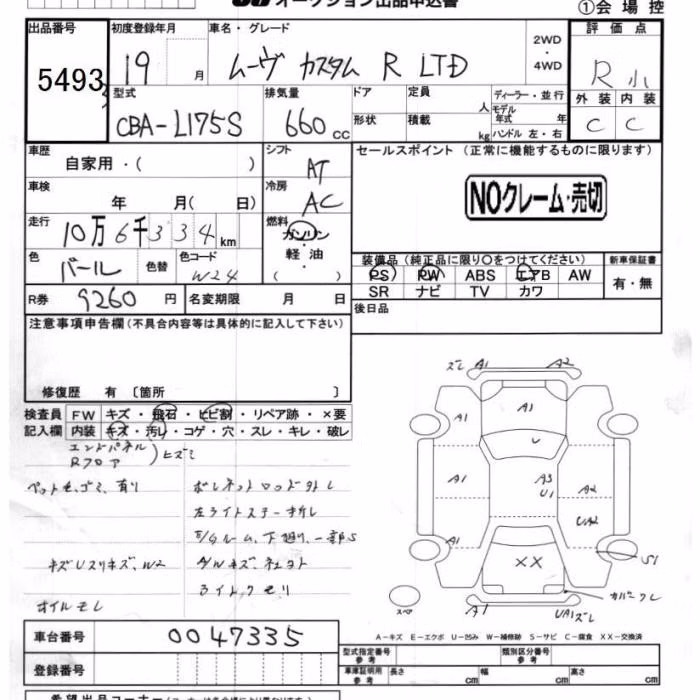 オークション出品申込書
①会場控
出品番号 初度登録年月 車名・グレード 2WD・4WD 評価点
5493 19 月 ムーヴ カスタム R LTD R 小
型式 排気量 ドア 定員 人 ディーラー・並行 外装 内装
CBA-L175S 660 cc 形状 積載 kg モデル年式 年 ハンドル 左・右 C C
車歴 自家用・( ) シフト AT セールスポイント (正常に機能するものに限ります)
車検 年 月( 日) 冷房 AC NOクレーム・売切
走行 10万6千334km 燃料 ガソリン・軽油・( )
色 パール 色替 色コード W24 装備品(純正品に限り〇をつけてください) 新車保証書
PS PW ABS エアB AW 有・無
SR ナビ TV カワ
R券 9260円 名変期限 月 日 後日品
注意事項申告欄(不具合内容等は具体的に記入して下さい)
修復歴 有 〔箇所 〕
検査員 FW キズ・飛石・ヒビ割・リペア跡・×要
記入欄 内装 キズ・汚レ・コゲ・穴・スレ・キレ・破レ
エンドパネル
Rフロア ヒズミ
ペット毛、ゴミ、有り
左ライトステー折レ
キズUスリキズ、W2
オイルモレ
ズレ A1 A2
A1 A1
U
A1 A3 U1 A2
UA2
A1 S1
XX
スペア A1 UA1 ズレ カバークレ
A-キズ E-エクボ U-凹み W-補修跡 S-サビ C-腐食 XX-交換済
車台番号 0047335
登録番号
型式指定番号 参考 類別区分番号 参考
車庫証明用 参考 長さ cm 幅 cm 高さ cm
希望出品コーナー